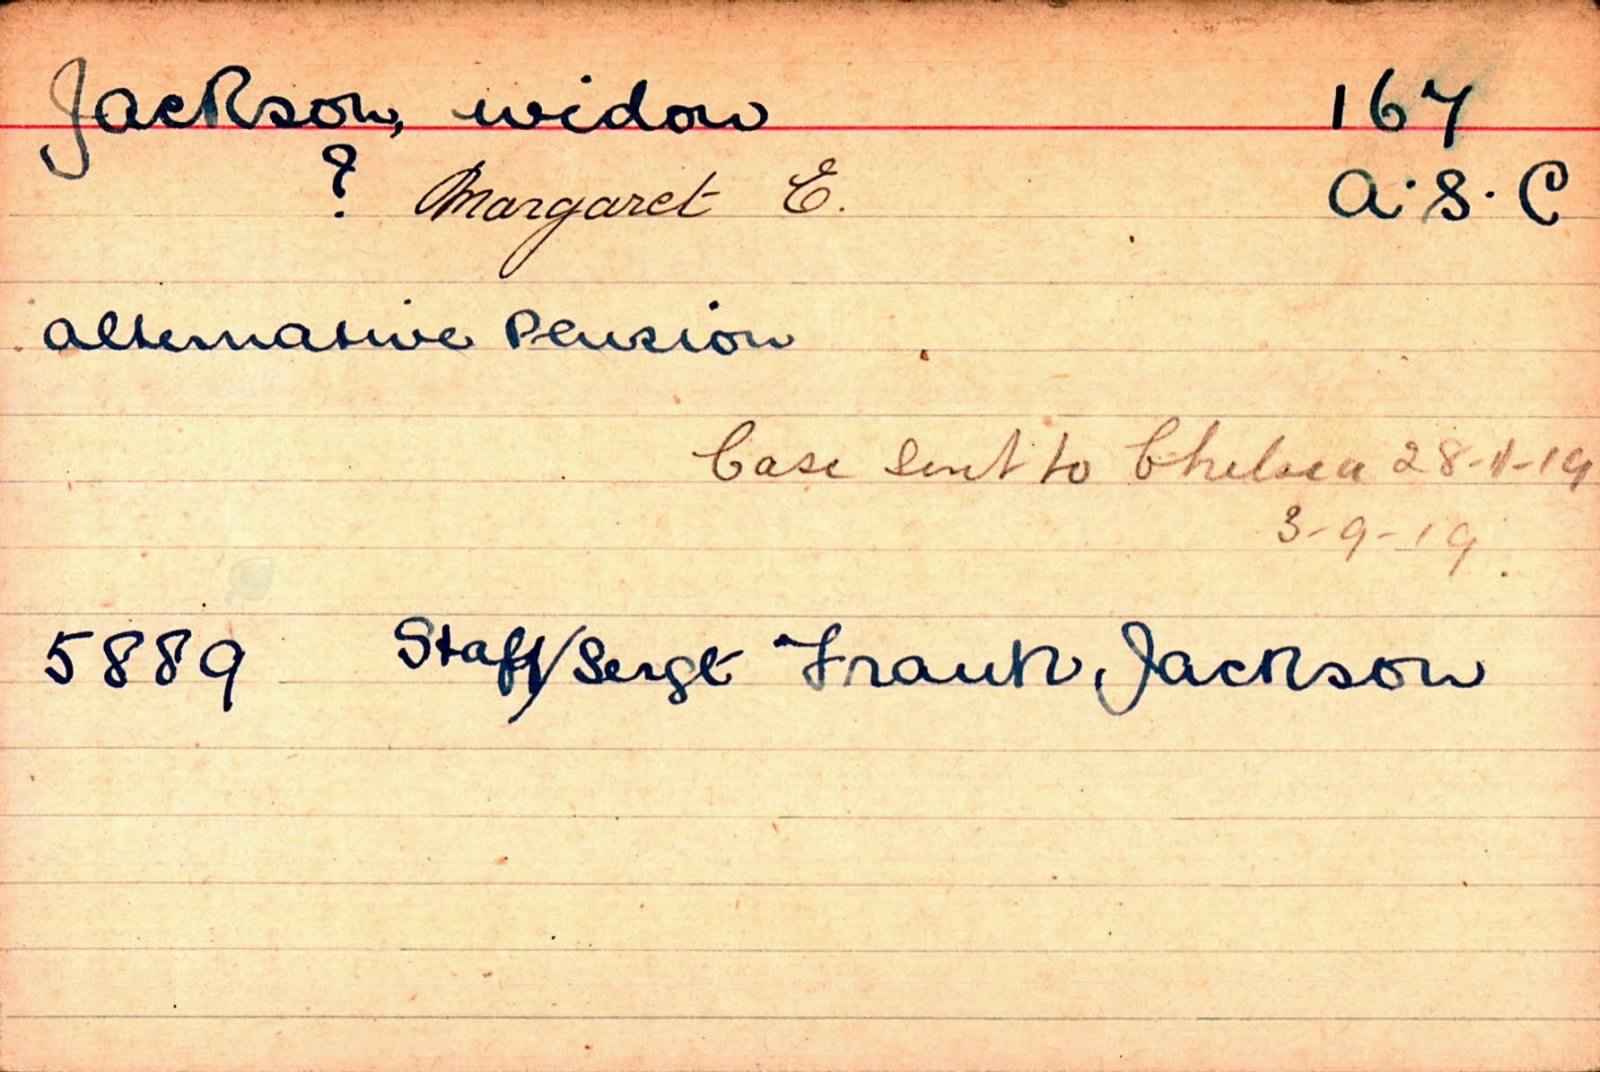 Jackson, widow 167
? Margaret E. A.S.C
Alternative Pension
Case sent to Chelsea 28-11-19
3-9-19.
5889 Staff/Sergt Frank Jackson